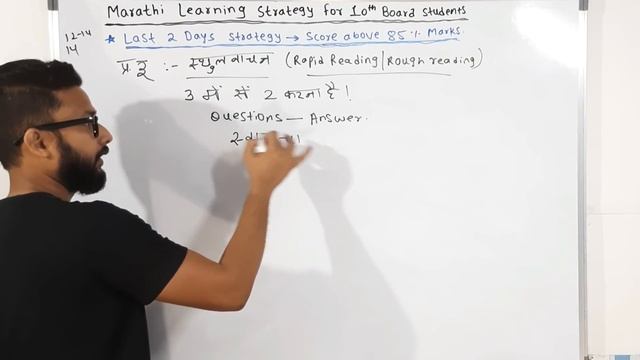 Marathi Learning Strategy for 10th Board Students
12-14
14
* Last 2 Days strategy → Score above 85 % Marks.
प्र ३ :- स्थुलवाचन (Rapid Reading/Rough reading)
3 में सें 2 करना है !
Questions — Answer.